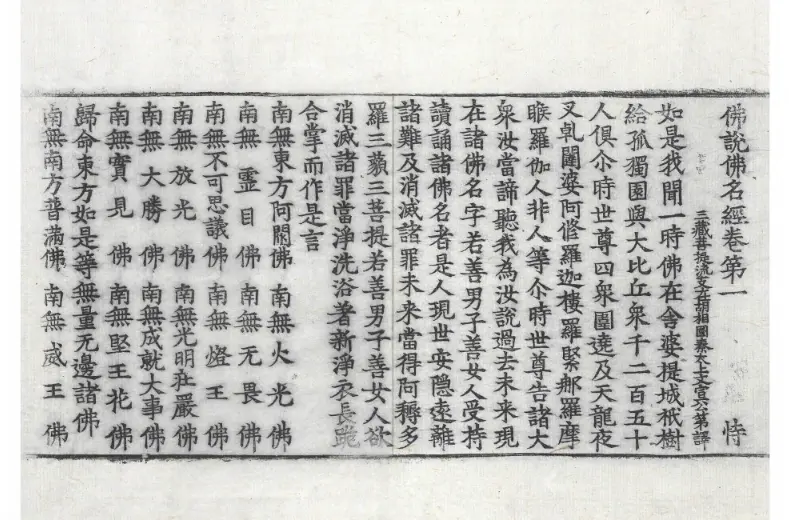 佛說佛名經卷第一 恃
三藏菩提流支在胡相國秦太上文宣公第譯
如是我聞一時佛在舍婆提城祇樹
給孤獨園與大比丘衆千二百五十
人俱尒時世尊四衆圍遶及天龍夜
叉乹闥婆阿修羅迦樓羅緊那羅摩
睺羅伽人非人等尒時世尊告諸大
衆汝當諦聽我為汝說過去未來現
在諸佛名字若善男子善女人受持
讀誦諸佛名者是人現世安隱遠離
諸難及消滅諸罪未來當得阿耨多
羅三藐三菩提若善男子善女人欲
消滅諸罪當淨洗浴著新淨衣長跪
合掌而作是言
南無東方阿閦佛 南無火光佛
南無靈目佛 南無无畏佛
南無不可思議佛 南無燈王佛
南無放光佛 南無光明莊嚴佛
南無大勝佛 南無成就大事佛
南無實見佛 南無堅王花佛
歸命東方如是等無量无邊諸佛
南無南方普滿佛 南無威王佛